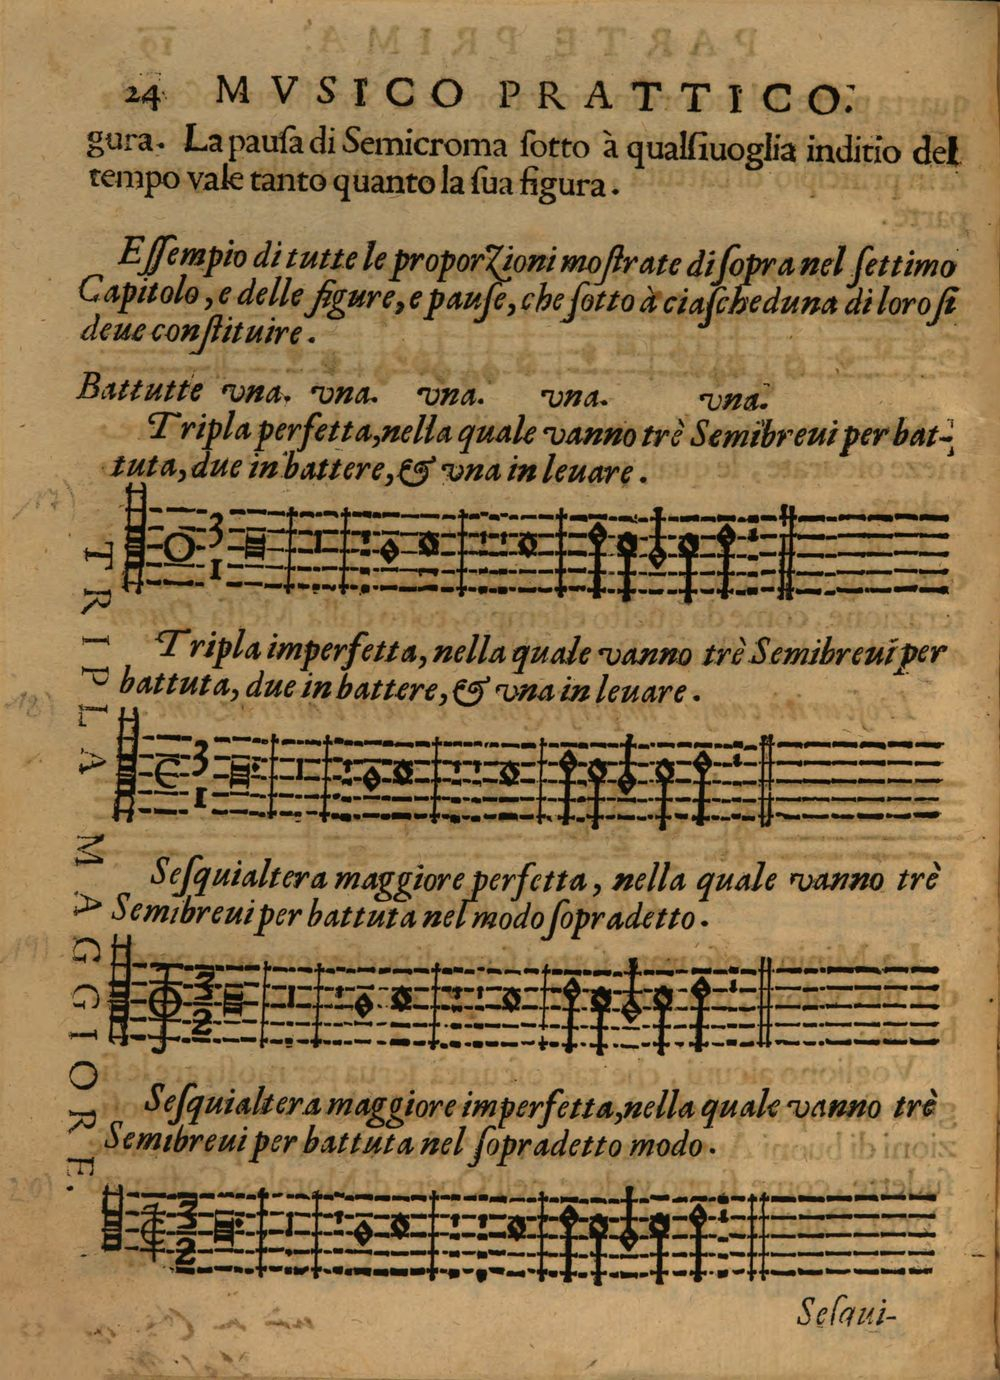 24 MVSICO PRATTICO.
gura. La pauſa di Semicroma ſotto à qualſiuoglia inditio del
tempo vale tanto quanto la ſua figura.
Eſſempio di tutte le proporzioni moſtrate di ſopra nel ſettimo
Capitolo, e delle figure, e pauſe, che ſotto à ciaſcheduna di loro ſi
deue conſtituire.
Battutte vna. vna. vna. vna. vna.
Tripla perfetta, nella quale vanno trè Semibreui per bat-
tuta, due in battere, & vna in leuare.
3
1
TRIPLA MAGGIORE.
Tripla imperfetta, nella quale vanno trè Semibreui per
battuta, due in battere, & vna in leuare.
3
1
Seſquialtera maggiore perfetta, nella quale vanno trè
Semibreui per battuta nel modo ſopradetto.
3
2
Seſquialtera maggiore imperfetta, nella quale vanno trè
Semibreui per battuta nel ſopradetto modo.
3
2
Seſqui-
17)
18)
19)
20)